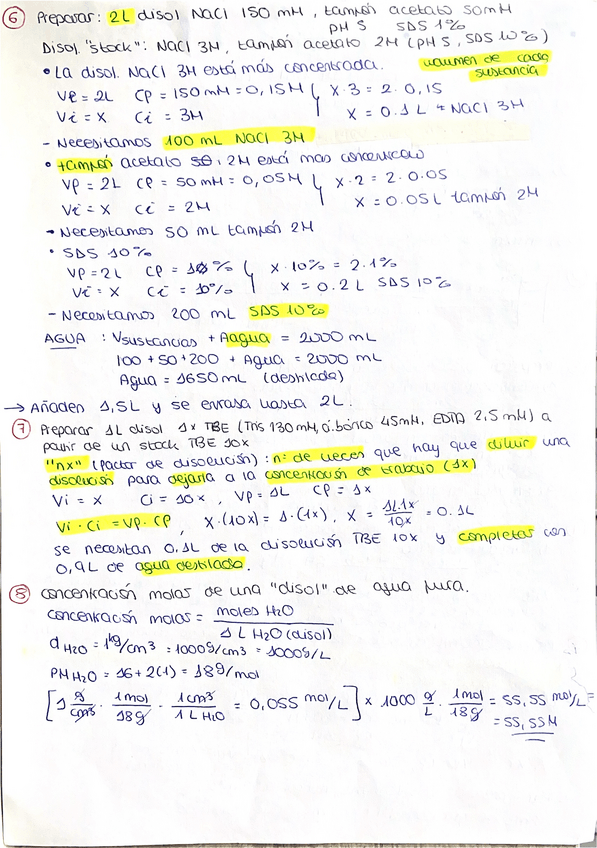 ⑥ Preparar: 2L disol NaCl 150 mM, tampón acetato 50mM
pH 5 SDS 1%
Disol. "stock": NaCl 3M, tampón acetato 2M (pH 5, SDS 10%)
• La disol. NaCl 3M está más concentrada. volumen de cada
sustancia
Vp = 2L Cp = 150 mM = 0,15M } x·3 = 2·0,15
Vi = x Ci = 3M x = 0.1 L + NaCl 3M
- Necesitamos 100 mL NaCl 3M
• tampón acetato 2M está mas concentrado
Vp = 2L Cp = 50 mM = 0,05M } x·2 = 2·0.05
Vi = x Ci = 2M x = 0.05 L tampón 2M
- Necesitamos 50 mL tampón 2M
• SDS 10%
Vp = 2L Cp = 1% } x·10% = 2·1%
Vi = x Ci = 10% x = 0.2 L SDS 10%
- Necesitamos 200 mL SDS 10%
AGUA : Vsustancias + Aagua = 2000 mL
100 + 50 + 200 + Agua = 2000 mL
Agua = 1650 mL (destilada)
→ Añaden 1,5L y se enrasa hasta 2L.
⑦ Preparar 1L disol 1x TBE (Tris 130 mM, á. bórico 45mM, EDTA 2,5 mM) a
partir de un stock TBE 10x
"nx" (factor de disolución) : nº de veces que hay que diluir una
disolución para dejarla a la concentración de trabajo (1x)
Vi = x Ci = 10x, Vp = 1L Cp = 1x
Vi · Ci = Vp · Cp, x·(10x) = 1·(1x), x = 1L·1x / 10x = 0.1L
se necesitan 0,1L de la disolución TBE 10x y completas con
0,9L de agua destilada.
⑧ concentración molas de una "disol" de agua pura.
concentración molas = moles H2O / 1 L H2O (disol)
d H2O = 1 kg/cm3 = 1000g/cm3 = 1000g/L
PM H2O = 16 + 2(1) = 18g/mol
[1 g/cm3 · 1mol/18g · 1cm3/1 L H2O = 0,055 mol/L] × 1000 g/L · 1mol/18g = 55,55 mol/L =
= 55,55M